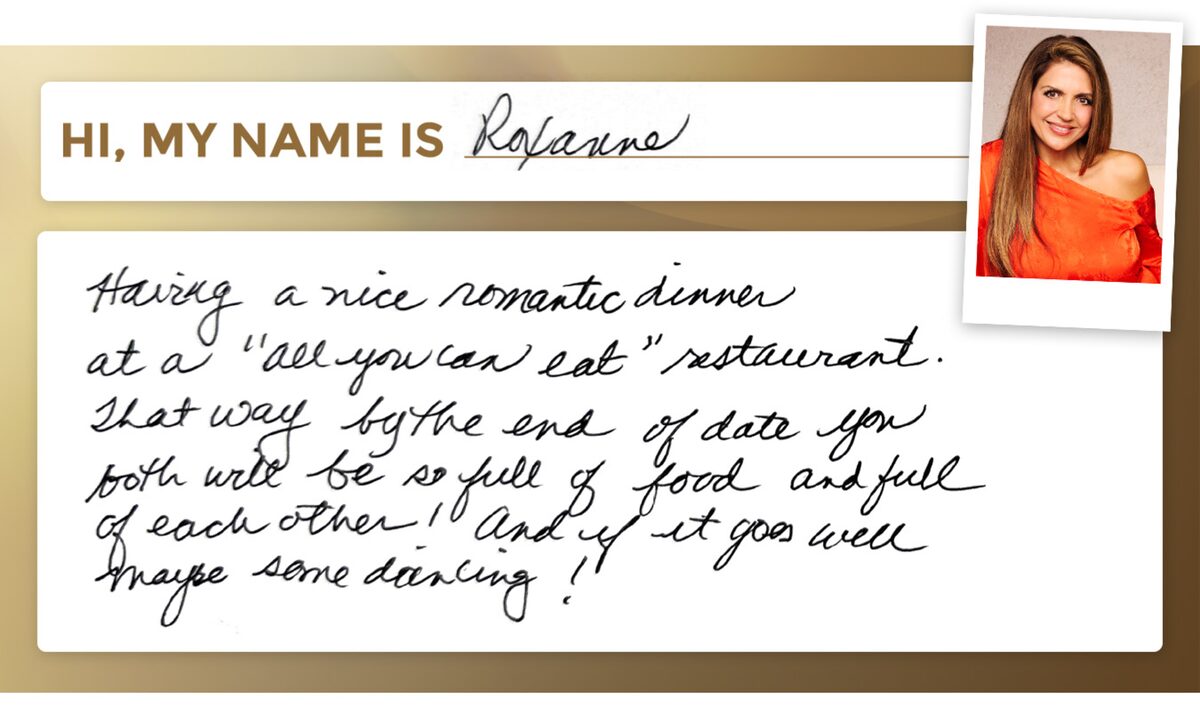 HI, MY NAME IS Roxanne
Having a nice romantic dinner
at a "all you can eat" restaurant.
That way by the end of date you
both will be so full of food and full
of each other! And if it goes well
maybe some dancing!